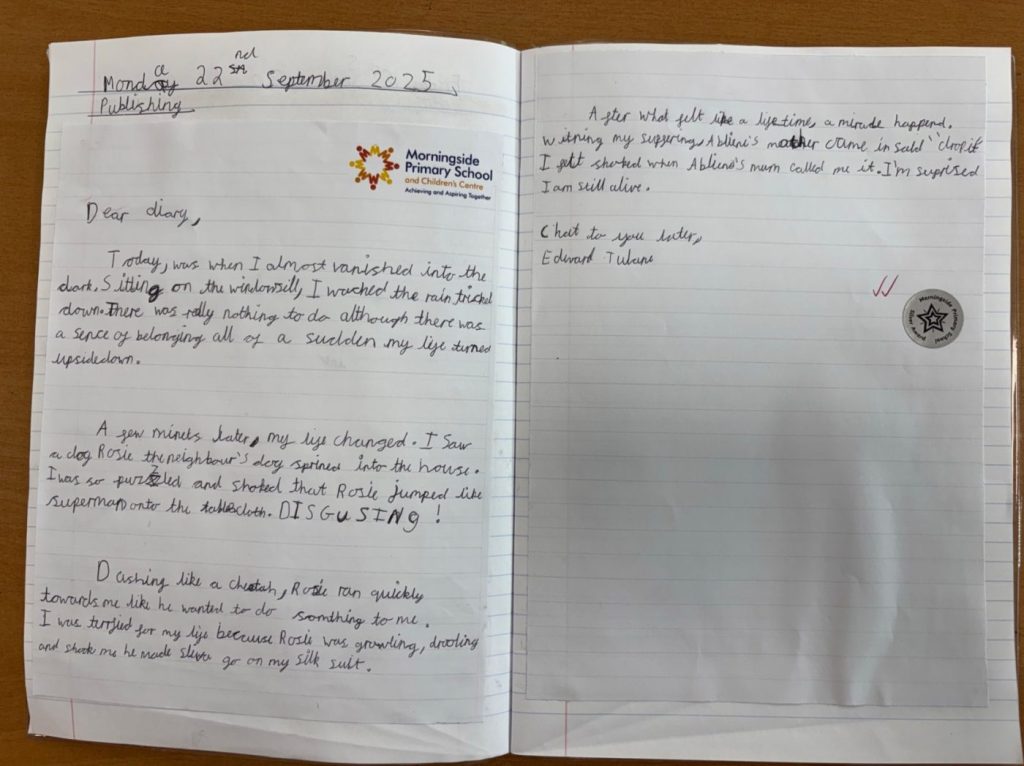 Monday 22nd September 2025
Publishing
Morningside
Primary School
and Children's Centre
Achieving and Aspiring Together
Dear diary,
Today, was when I almost vanished into the
dark. Sitting on the windowsill, I wached the rain trickel
down. There was relly nothing to do although there was
a sence of belonging all of a sudden my life turned
upsidedown.
A few minets later, my life changed. I saw
a dog Rosie the neighbour's dog sprined into the house.
I was so puzzled and shoked that Rosie jumped like
superman onto the tablecloth. DISGUSING!
Dashing like a cheetah, Rosie ran quickly
towards me like he wanted to do somthing to me.
I was terrfied for my life because Rosie was growling, drooling
and shook me he made sliva go on my silk suit.
After what felt like a lifetime, a miracle happend.
witning my suffering, Abliene's mother came in said "drop it
I felt shoked when Abliene's mum called me it. I'm suprised
I am still alive.
Chat to you later,
Edward Tulane
Morningside Primary School